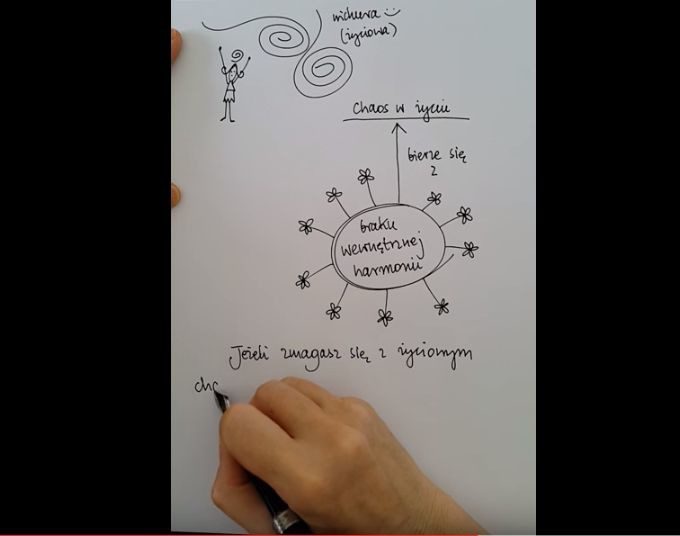 wichura
(życiowa)
Chaos w życiu
bierze się
z
braku
wewnętrznej
harmonii
Jeżeli zmagasz się z życiowym
cha